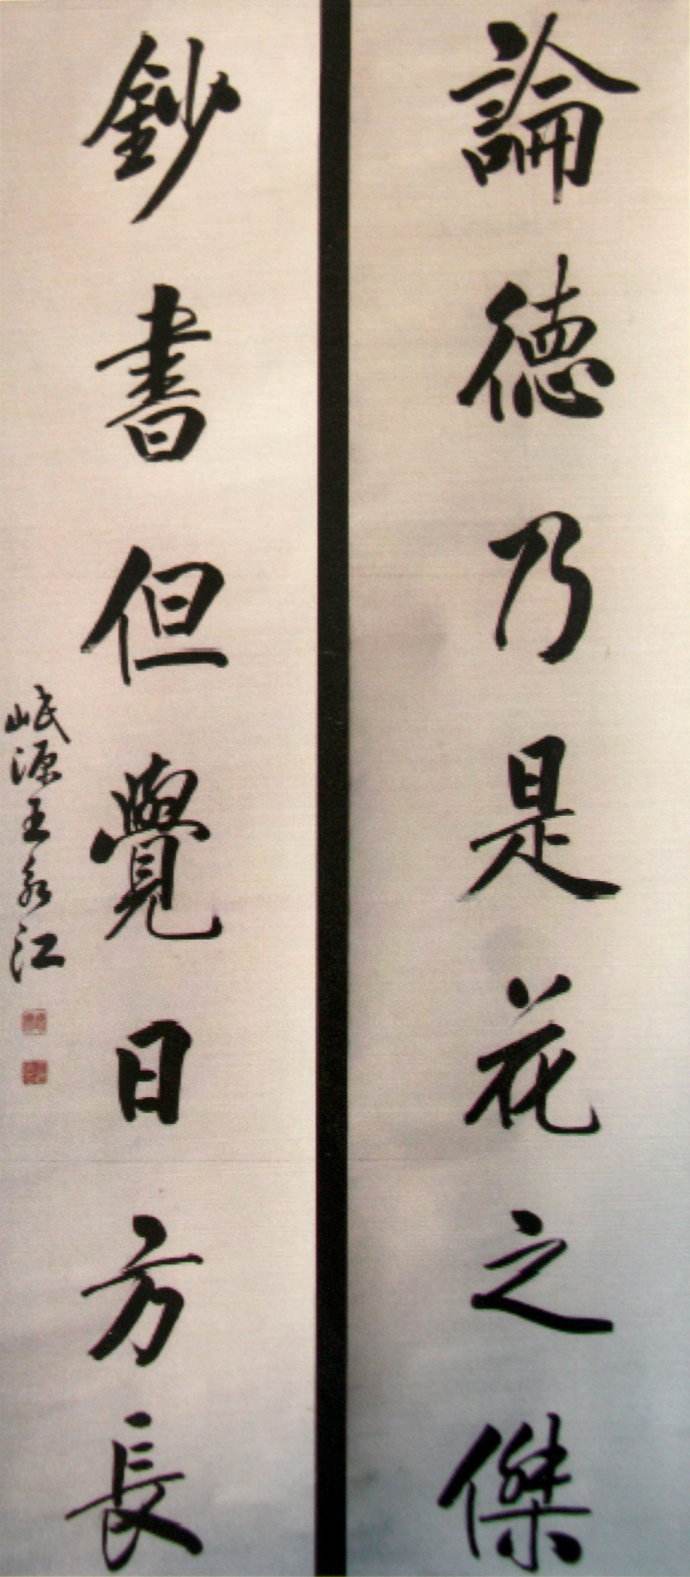 論德乃是花之傑
鈔書但覺日方長
岷源王永江